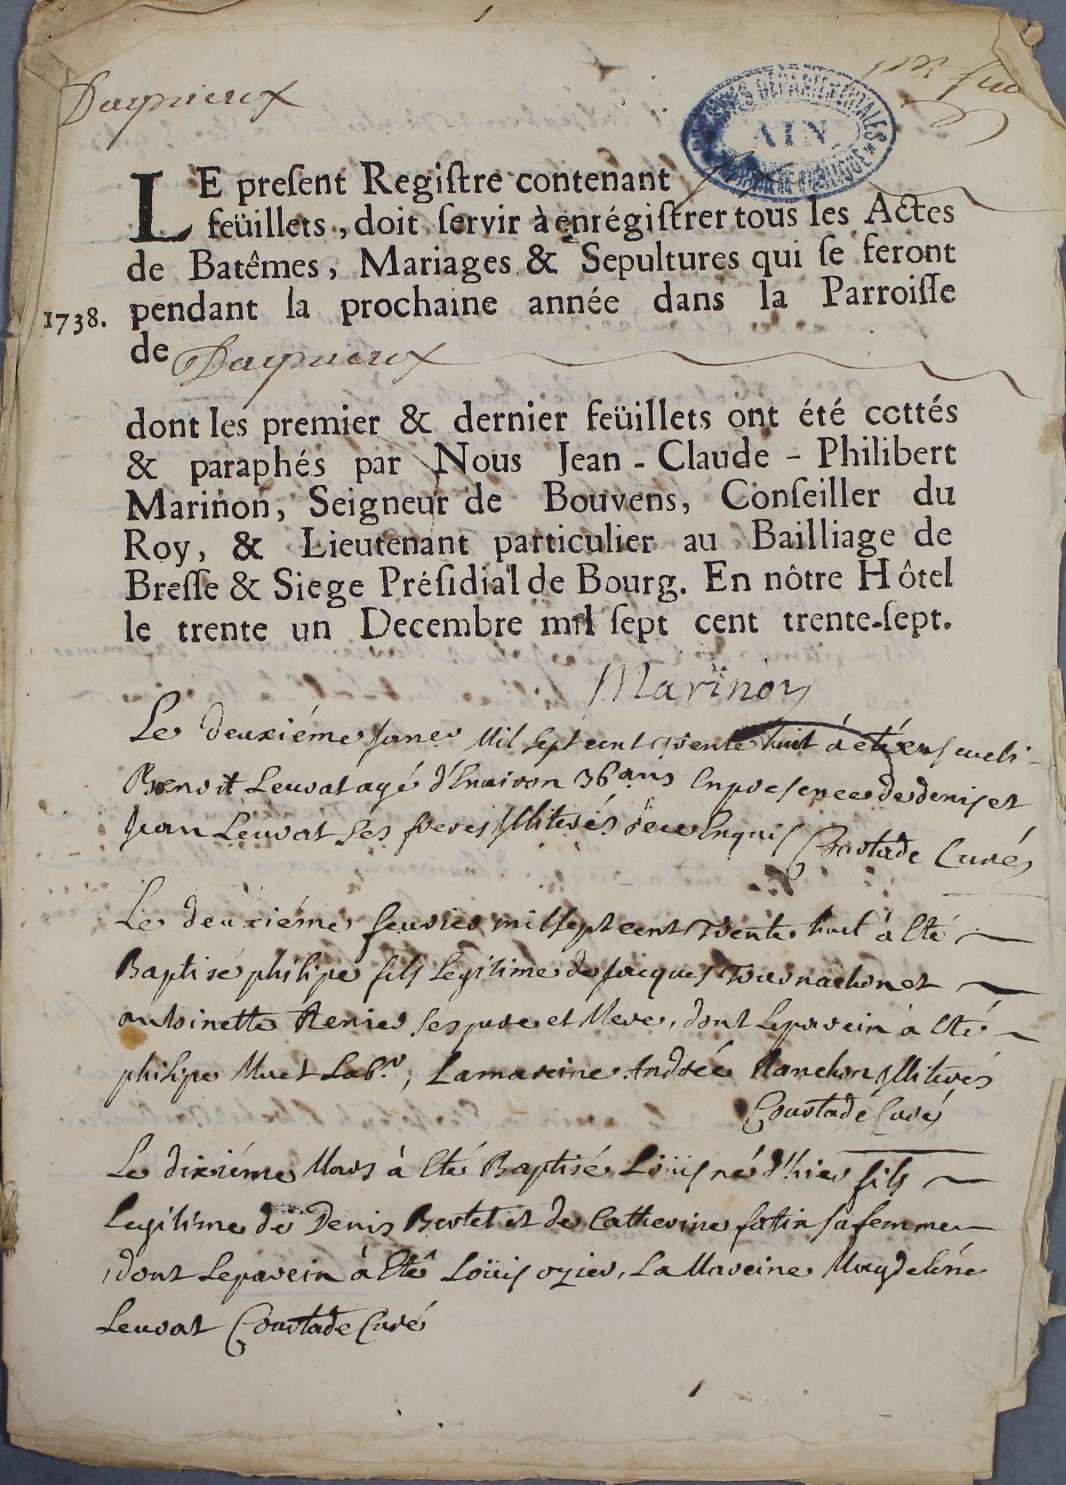 Dagnieux
ARCHIVES DÉPARTEMENTALES
AIN
LE preſent Regiſtre contenant
feüillets, doit ſervir à enrégiſtrer tous les Actes
de Batêmes, Mariages & Sepultures qui ſe feront
1738. pendant la prochaine année dans la Parroiſſe
de Dagnieux
dont les premier & dernier feüillets ont été cottés
& paraphés par Nous Jean - Claude - Philibert
Marinon, Seigneur de Bouvens, Conſeiller du
Roy, & Lieutenant particulier au Bailliage de
Breſſe & Siege Préſidial de Bourg. En nôtre Hôtel
le trente un Decembre mil ſept cent trente-ſept.
Marinon
Le deuxiéme Janer Mil sept cent trente huit à été enseveli
Benoit Leuvat agé d'Environ 36 ans En presence de denis et
Jean Leuvat ses freres Illiterés de ce Enquis Coustade Curé
Le deuxiéme feuvier mil sept cent trente huit à Eté
Baptisé philipe fils Legitime de Jacques Tournachon et
antoinette Renier ses pere et Mere, dont Le parein à Eté
philipe Muet Labr, La mareine Andrée Planchon Illiterés
Coustade Curé
Le dixiéme Mars à Eté Baptisé Loüis né d'hier fils
Legitime de Denis Bertet et de Catherine fatin sa femme
dont Le parein à Eté Loüis ozier, La Mareine Magdeléne
Leuvat Coustade Curé